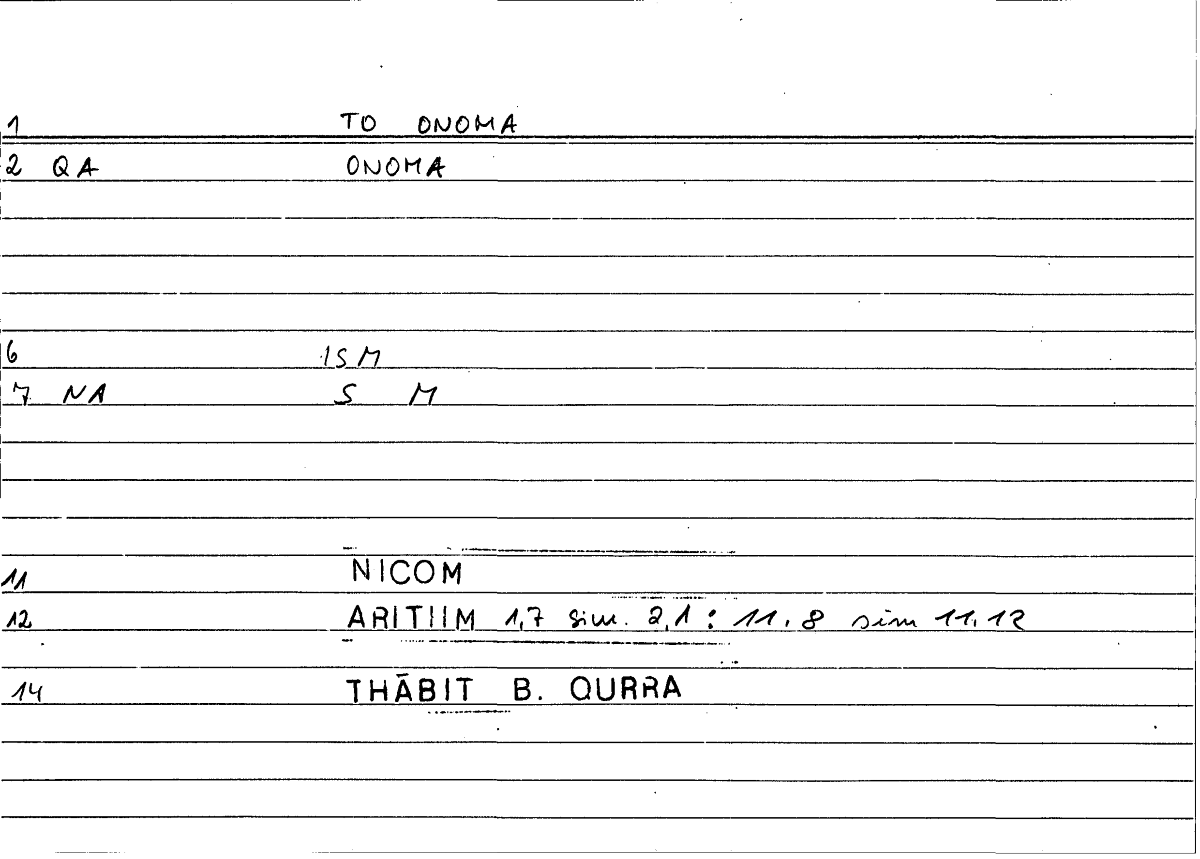 1 TO ONOMA
2 QA ONOMA
6 ISM
7 NA S M
11 NICOM
12 ARITIIM 1,7 sim. 2,1 : 11.8 sim 11,12
14 THĀBIT B. QURRA